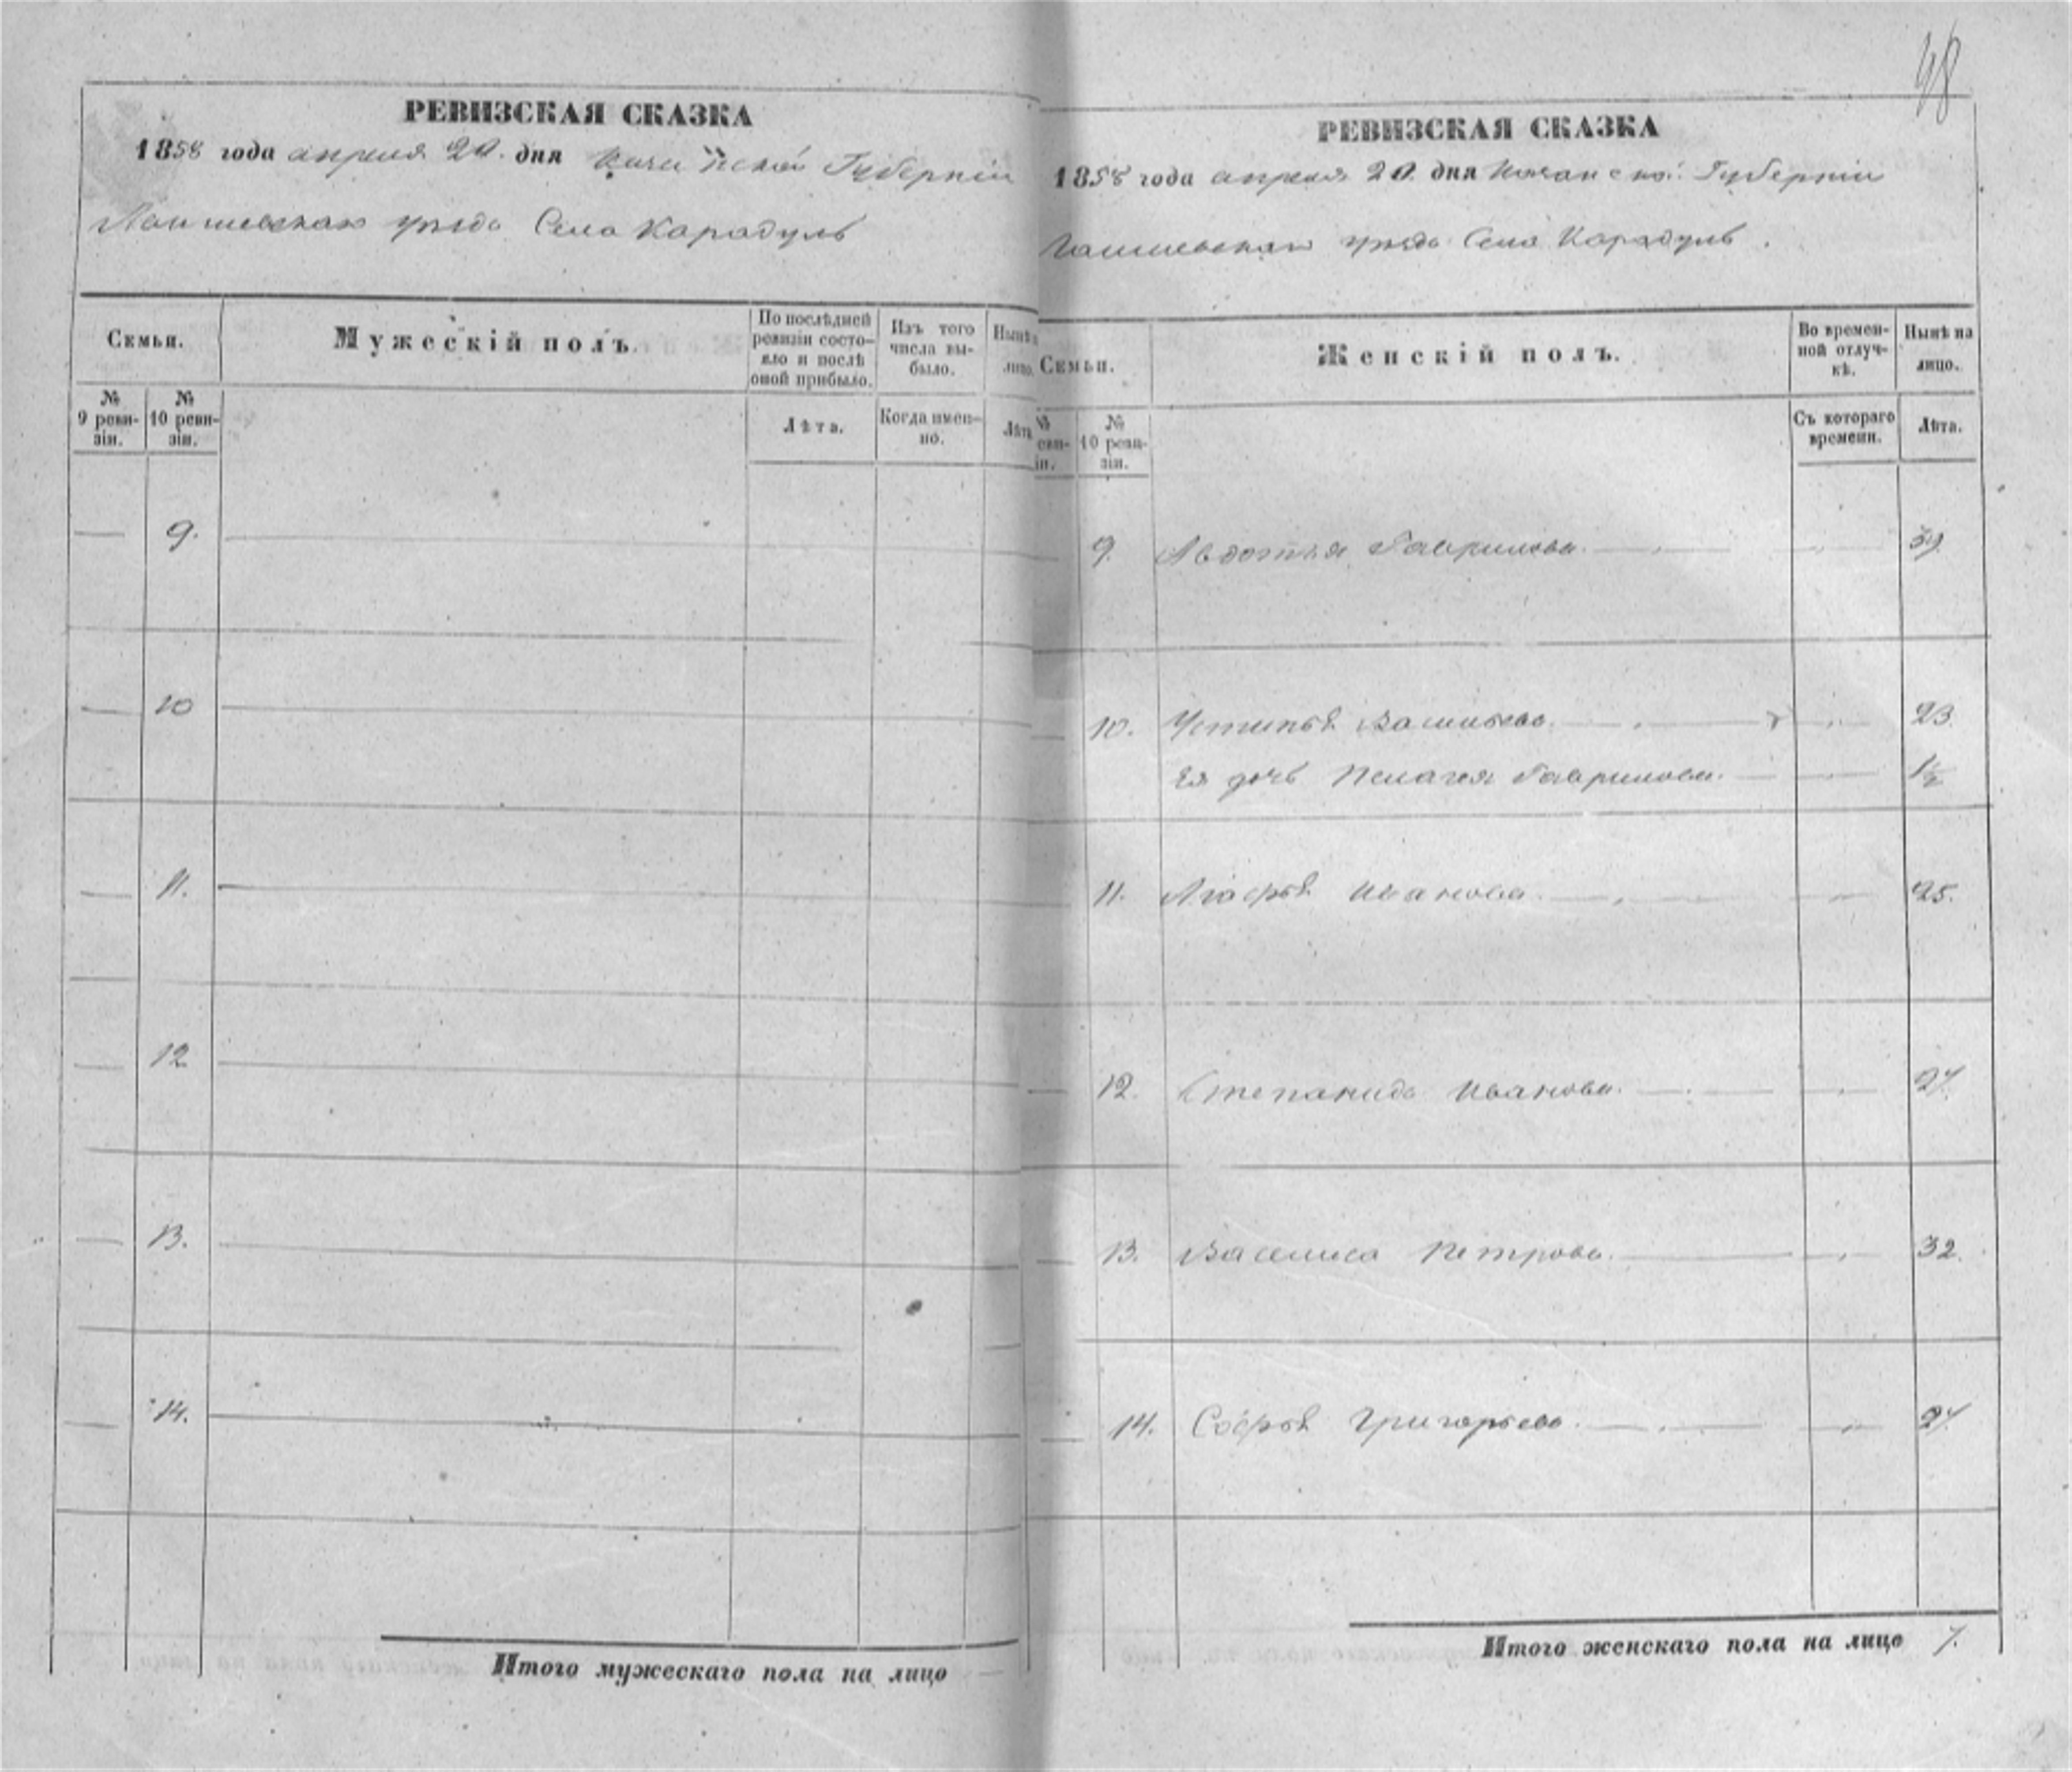 48
РЕВИЗСКАЯ СКАЗКА
1858 года апреля 20. дня Казанской Губерніи
Лаишевскаго уезда Села Карадуль
Семьи.
Мужескій полъ.
По послѣдней ревизіи состояло и послѣ оной прибыло.
Изъ того числа выбыло.
Нынѣ лицо.
№ 9 ревизіи.
№ 10 ревизіи.
Лѣта.
Когда именно.
Лѣт
9.
10
11.
12
13.
14.
Итого мужескаго пола на лицо
РЕВИЗСКАЯ СКАЗКА
1858 года апреля 20. дня Казанской Губерніи
Лаишевскаго уезда Села Карадуль.
Семьи.
Женскій полъ.
Во временной отлучкѣ.
Нынѣ на лицо.
№ 10 ревизіи.
Съ котораго времени.
Лѣта.
9. Авдотья Гаврилова. 39
10. Устинья Васильева. 23
Ея дочь Пелагея Гаврилова. 1½
11. Агафья Иванова. 25.
12. Степанида Иванова. 27.
13. Василиса Петрова. 32.
14. Софья Григорьева. 27
Итого женскаго пола на лицо 7.